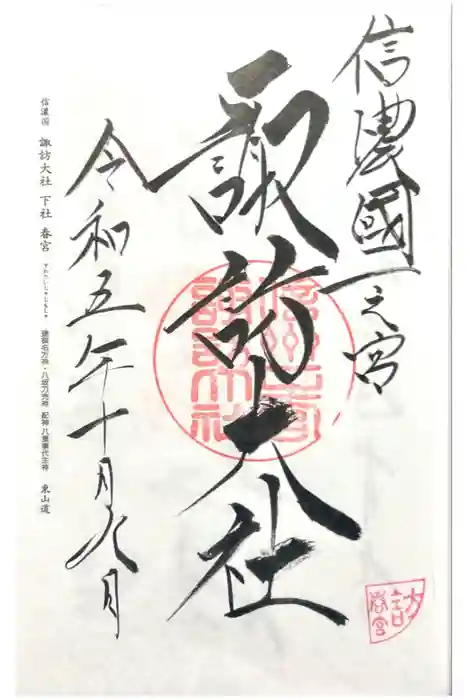 信濃國一之宮
諏訪大社
令和五年十月八日
信濃国 諏訪大社 下社 春宮 すわたいしゃしもしゃ 建御名方神・八坂刀売神 配神 八重事代主神 東山道
諏訪大社
春宮